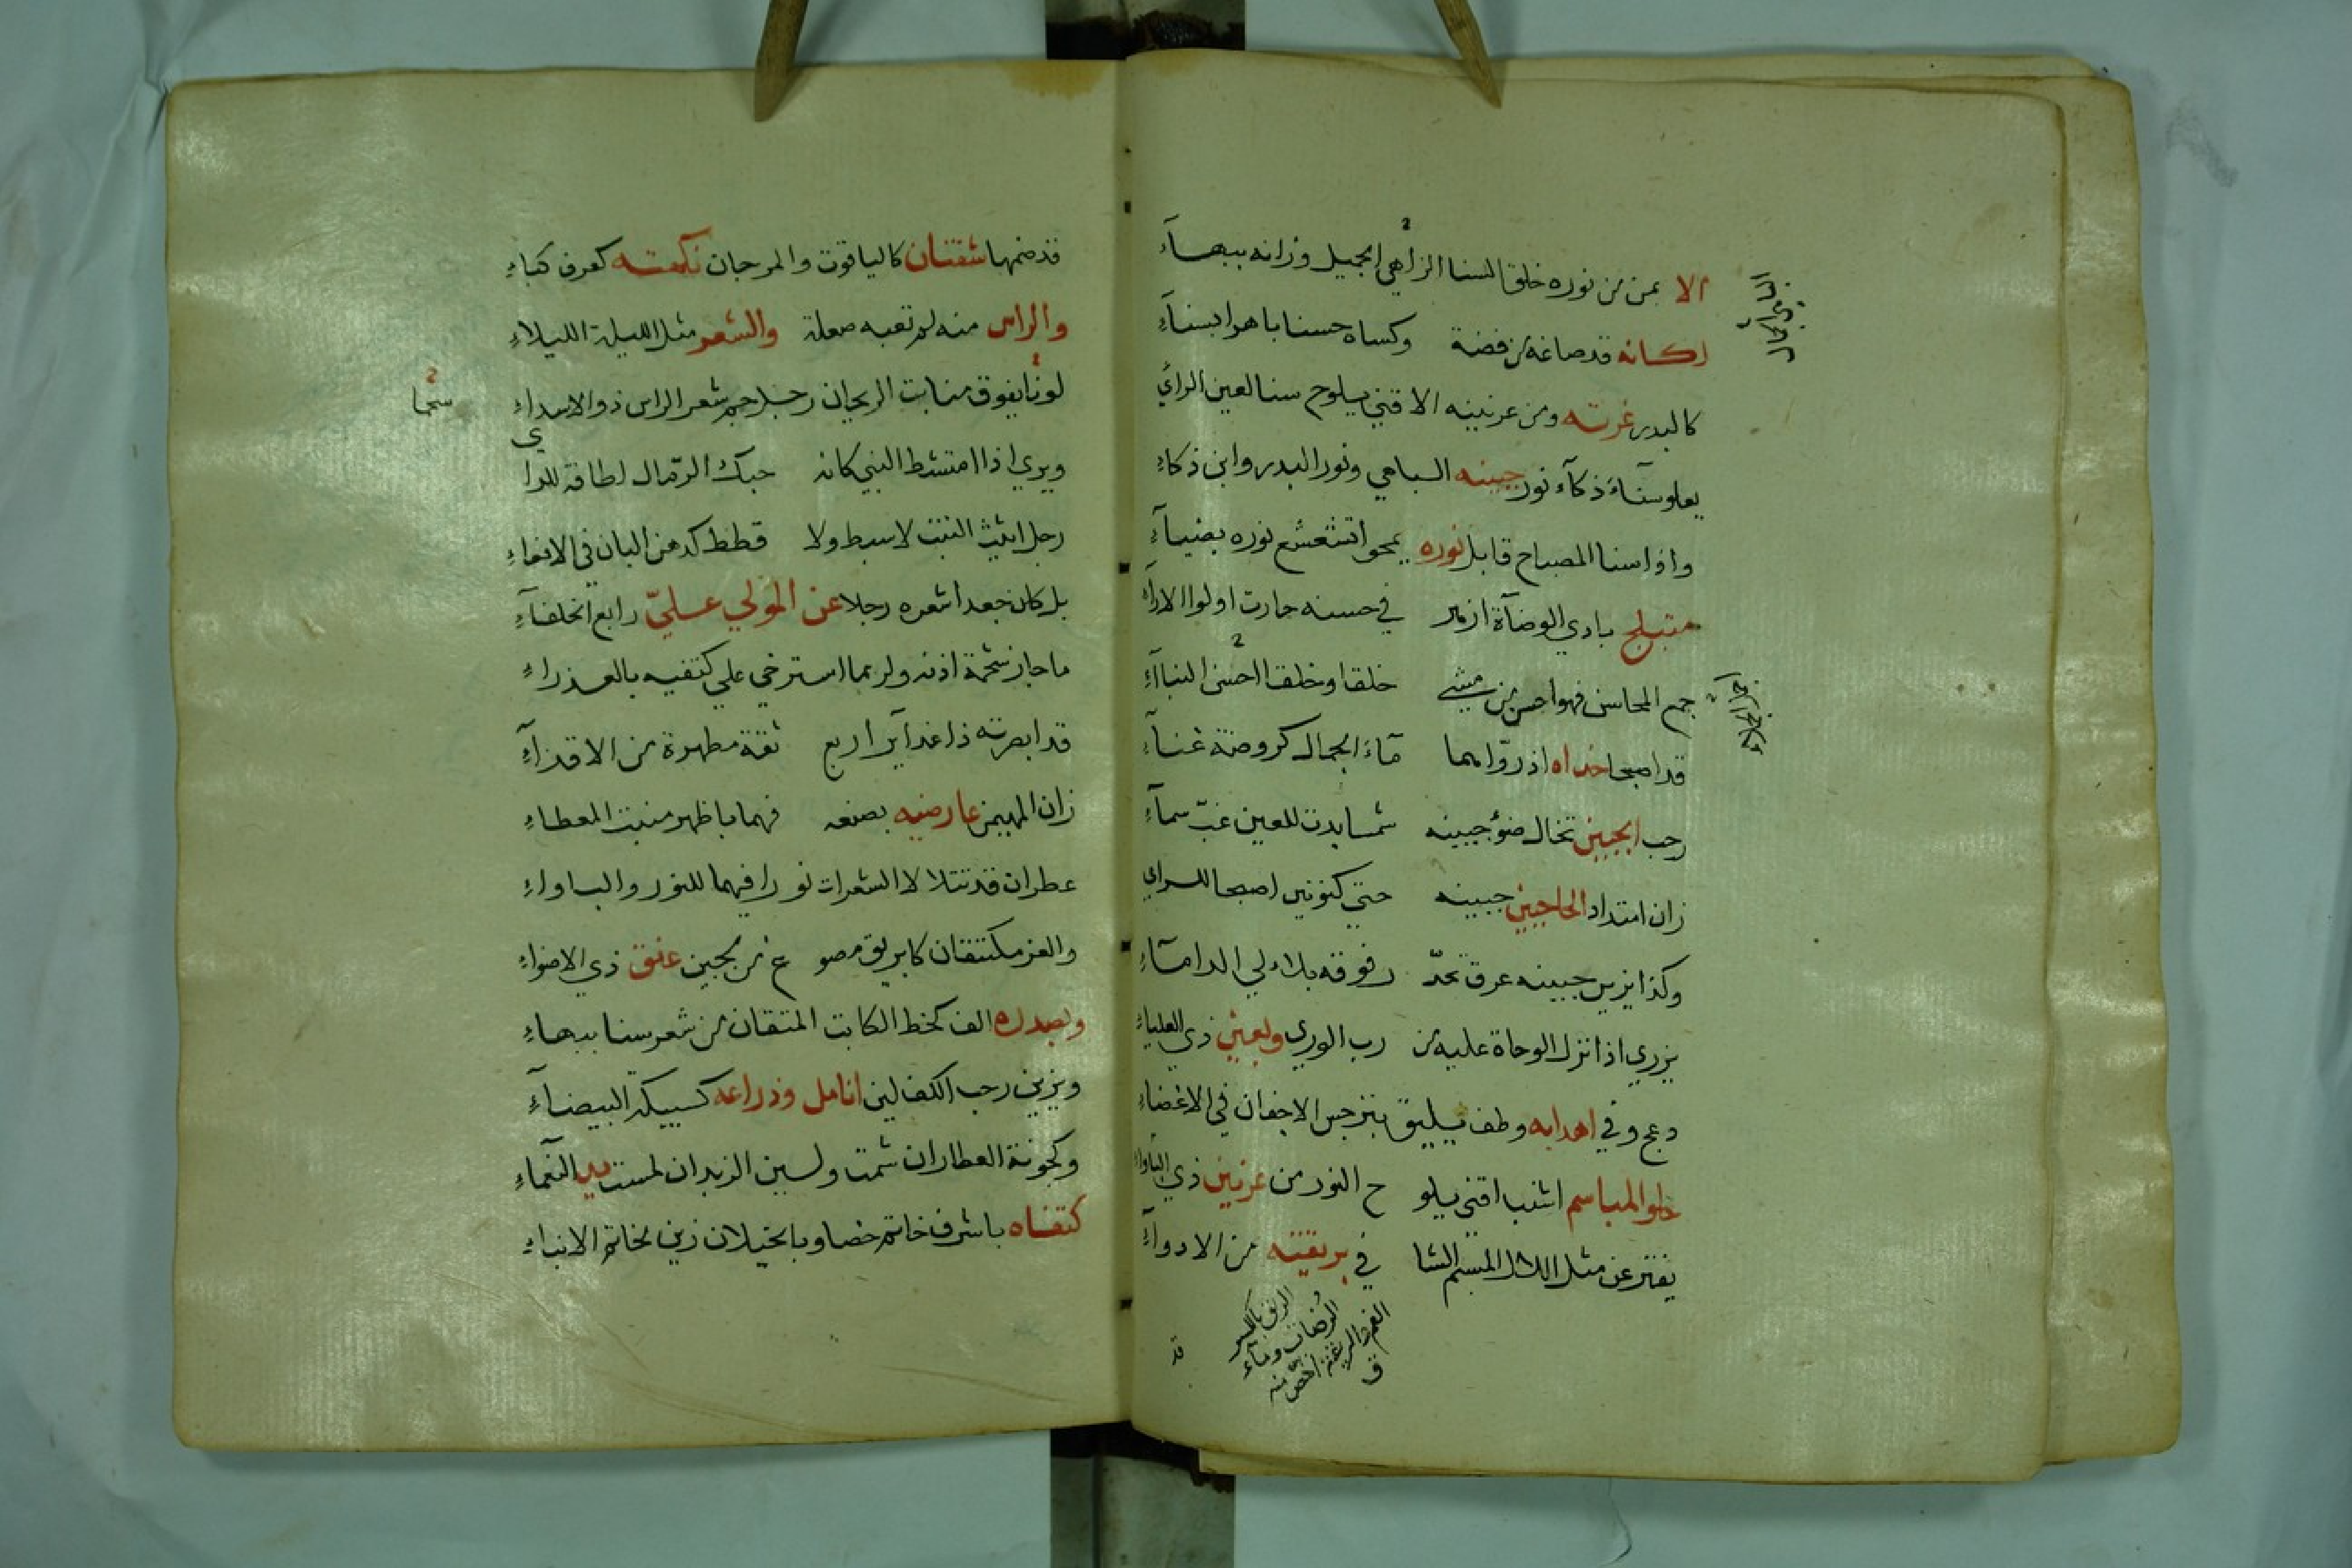 الا بمن من نوره خلق السنا الزاهي الجميل وزانه ببهآء
كالبدر غرته ومن عرنينه الاقنى يلوح سنا لعين الرائي
لكانه قد صاغه من فضة وكساه حسنا باهرا بسنآء
يعلو سنآء ذكآء نور جبينه السامي ونور البدر وابن ذكاء
واذا سنا المصباح قابل نوره يمحو اتشعشع نوره بضيآء
متبلج بادي الوضآة ازهر في حسنه حارت اولوا الارآء
جمع المحاسن فهو احسن من مشى خلقا وخلقا احسن النبآء
قد اصبحا خداه اذ روّاهما مآء الجمال كروضة غنآء
رحب الجبين تخال ضوء جبينه شمسا بدت للعين غبّ سمآء
زان امتداد الحاجبين جبينه حتى كنونين اصبحا للراي
وكذا يزين جبينه عرق تحدّ ر فوقه بلاءلي الدامآء
يزري اذا نزل الوحاة عليه من رب الورى وبعين ذي العلياء
دعج وفي اهدابه وطف يليق بنرجس الاجفان في الاغضاء
حلو المباسم اشنب اقنى يلو ح النور من عرنين ذي الباواء
يفتر عن مثل اللال المبسم الشا في بريقته من الادوآء
الريق بالكسر
الرضاب ومآء
الفم والريقة اخص منه
ق
قد
قد ضمها شفتان كالياقوت والمرجان نكهته كعرف كباء
والراس منه لم تعبه صعلة والشعر مثل الليلة الليلاء
لونا يفوق منابت الريحان رجل جم شعر الراس ذو الاسداء
ويرى اذا امتشط النبي كانه حبك الرّمال لطافة للرا ي
رجل اثيث النبت لا سبط ولا قطط كدهن البان في الافواء
بل كان جعدا شعره رجلا عن المولى عليّ رابع الخلفآء
ما جاز شحمة اذنه ولربما استرخى على كتفيه بالعذراء
قد ابصرته ذا غدآير اربع ثقة مطهرة من الاقذآء
زان المهيمن عارضيه بصنعه فهما باظهر منبت المعطاء
عطران قد تتلالا الشعرات نورا فيهما للنور والباواء
والعز مكتنفان كابريق مصو غ من لجين عنق ذي الاضواء
وبصدره الف كخط الكاتب المتقان من شعر سنا ببهاء
ويزين رحب الكف لين انامل وذراعه كسبيكة البيضآء
وكجونة العطار ان شمت ولين الزبد ان لمست يد النعماء
كتفاه باشرف خاتم خصا وبالخيلان زين بخاتم الانباء